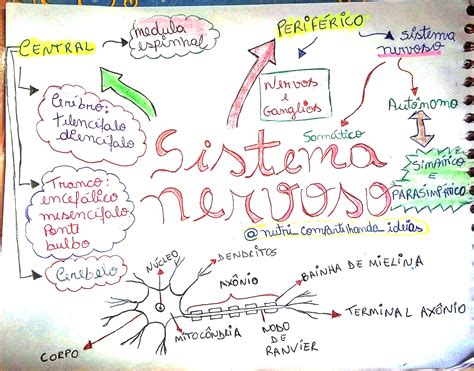 CENTRAL
medula
espinhal
PERIFÉRICO
Sistema
nervoso
Nervos
e
Gânglios
Somático
Autônomo
SIMPÁTICO
e
PARASIMPÁTICO
Cérebro:
telencéfalo
diencéfalo
Tronco:
encefálico
mesencéfalo
Ponti
bulbo
Cerebelo
Sistema
nervoso
@nutri_compartilhando_ideias
NÚCLEO
DENDRITOS
AXÔNIO
BAINHA DE MIELINA
TERMINAL AXÔNIO
MITOCÔNDRIA
NODO
DE
RANVIER
CORPO